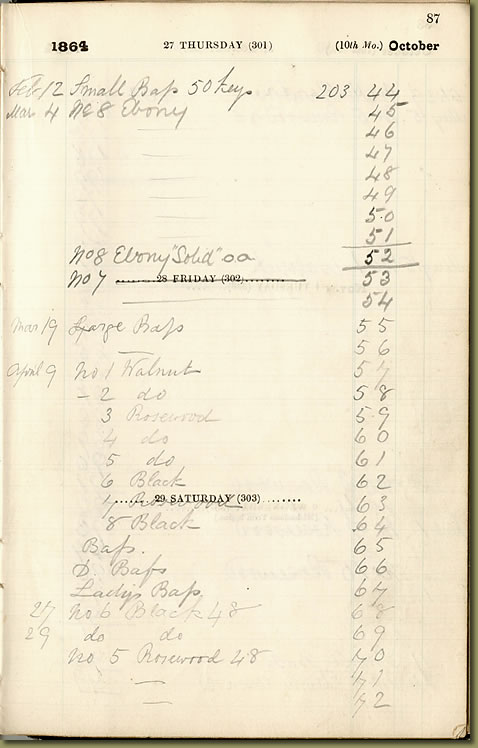 87
1864 27 THURSDAY (301) (10th Mo.) October
Feb 12 Small Bass 50 keys 203 44
Mar 4 No 8 Ebony 45
— 46
— 47
— 48
— 49
50
51
No 8 Ebony "Solid" 52
No 7 53
28 FRIDAY (302)
54
Mar 19 Large Bass 55
— 56
April 9 No 1 Walnut 57
– 2 do 58
3 Rosewood 59
4 do 60
5 do 61
6 Black 62
29 SATURDAY (303)
7 Rosewood 63
8 Black 64
Bass. 65
D. Bass 66
Ladys Bass 67
27 No 6 Black 48 68
29 do do 69
No 5 Rosewood 48 70
— 71
— 72